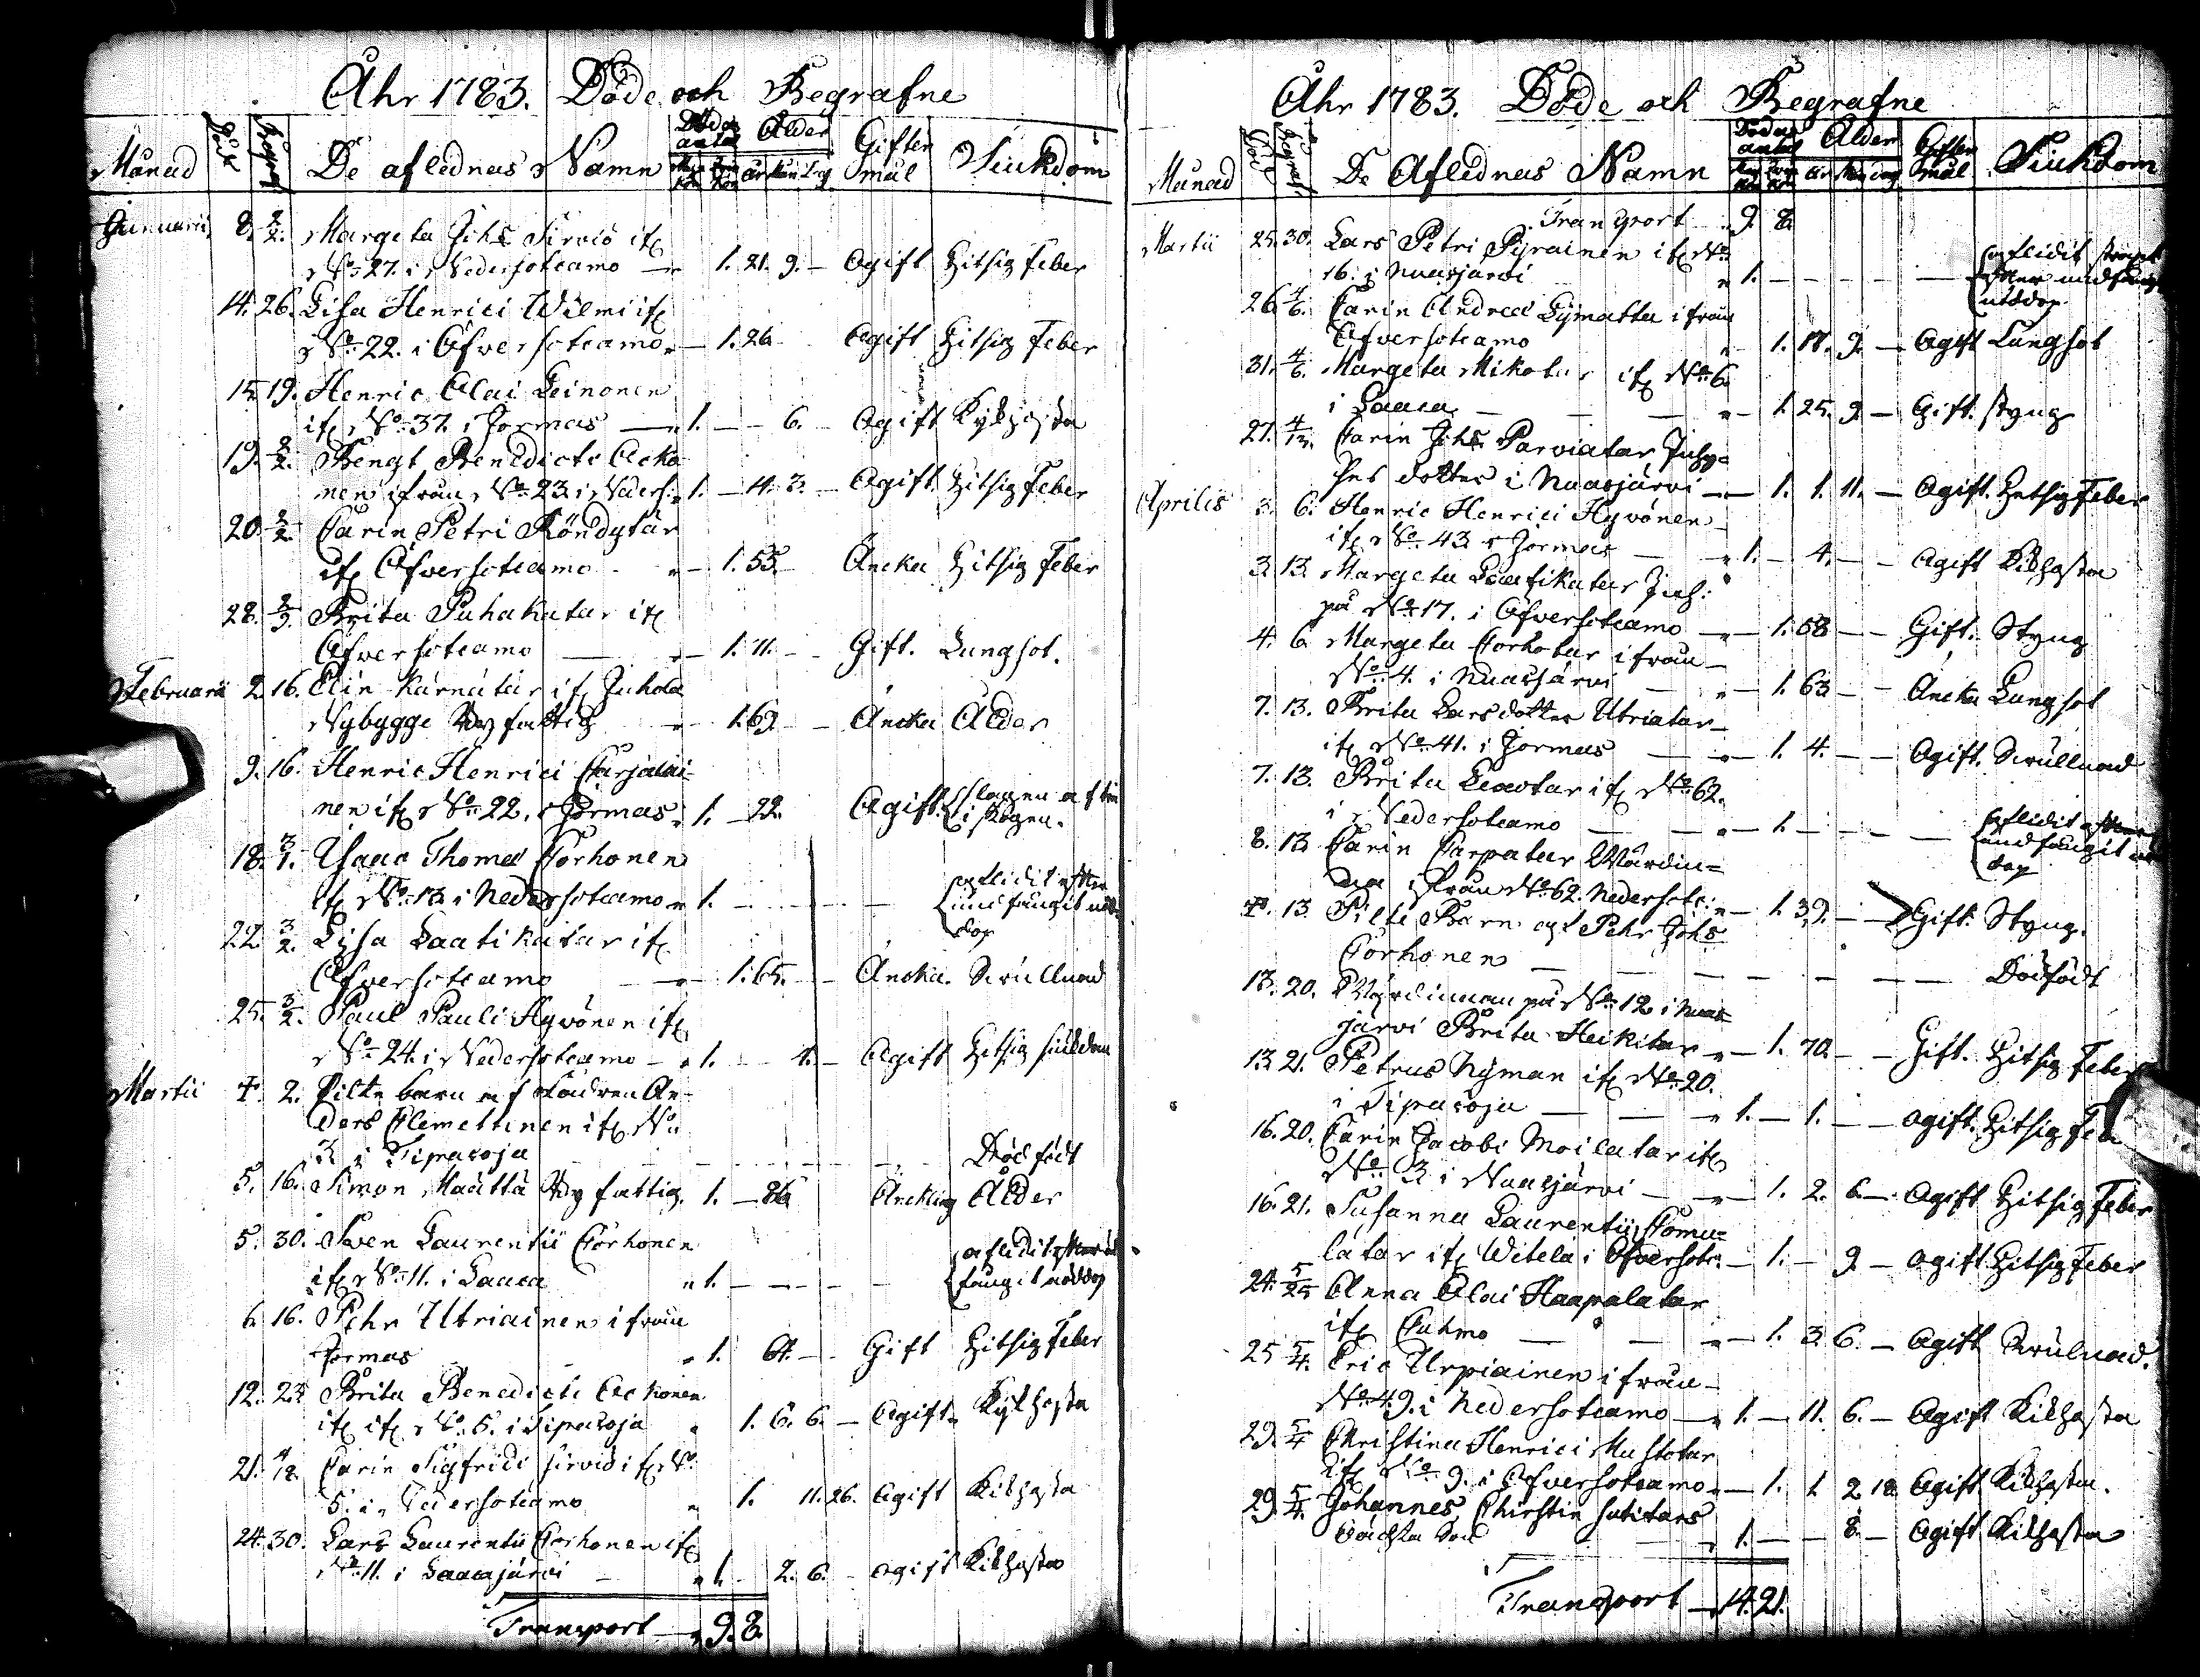 Åhr 1783. Döde och Begrafne
Månad Död Begrof De aflednas Namn Döda antal Ålder Giftermål Siukdom
Mankön Qvinkön År Mån Dag
Januarii 8. 2/2. Margeta Johs Sirviö ifr
No 27. i Nedersoteamo — 1. 21. 9. — Ogift Hitsig Feber
14. 26. Lisa Henrici Wilmi ifr
No 22. i Öfversoteamo — 1. 26 Ogift Hitsig Feber
15. 19. Henric Olai Leinonen
ifr No 37. i Jormas — 1. — — 6. — Ogift Kykhosta
19. 2/2. Bengt Benedicti Acko-
nen ifrån No 23 i Neders: 1. — 4. 3. — Ogift. Hitsig Feber
20. 2/2. Carin Petri Röndytär
ifr Öfversoteamo — 1. 55. Äncka Hitsig Feber
28. 2/9. Brita Puhakatar ifr
Öfversoteamo — 1. 71. — Gift. Lungsot.
Februarii 2. 16. Elin Kärnätär ifr Juhola
Nybygge Rg fattig 1. 69 — Äncka Ålder
9. 16. Henric Henrici Carjalai-
nen ifr No 22. i Jormas 1. — 22. Ogift. slagen af trä
i skogen.
18. 3/1. Isaac Thomæ Corhonen
ifr No 13 i Nedersoteamo 1. — — — afledit efter
undfångit nöd-
dop
22. 3/2. Lisa Laatikatar ifr
Öfversoteamo — 1. 65. — Äncka. Svullnad
25. 3/2. Paul Pauli Hyvönen ifr
No 24. i Nedersoteamo — 1. — 4. — Ogift Hitsig siukdom
Martii 7. 2. Pilte barn af Födren An-
ders Clemettinen ifr No
3. i Tipasoja — — — Död födt
5. 16. Simon Määttä Rg fattig. 1. — 86 Änckling Ålder
5. 30. Sven Laurentii Corhonen afledit efter und
ifr No 11. i Laaca 1. — — — fångit nöddop
6. 16. Pehr Utriainen ifrån
Jormas 1. 64. — Gift Hitsig Feber
12. 23 Brita Benedicti Ackonen
ifr ifr No 5. i Tipasoja 1. 6. 6. — Ogift Kykhosta
21. 4/18. Carin Sigfridi Sirviö ifr No
5. i Nedersoteamo 1. 11. 26. Ogift Kikhosta
24. 30. Lars Laurentii Corhonen ifr
No 11. i Laacajärvi — 1. — 2. 6. — Ogift Kikhosta
Transport — 9. 8.
Åhr 1783. Döde och Begrafne
Månad Död Begrof De Aflednas Namn Döda antal Ålder Giftermål Siukdom
Mankön Qvinkön År Mån Dag
Transport 9. 8.
Martii 25. 30. Lars Petri Pyrainen ifr No afledit strax
16. i Nuasjärvi 1. — — — efter undfångit
nöddop
26. 4/6. Carin Andreæ Lymatta ifrån
Öfversoteamo — 1. 17. 9. — Ogift Lungsot
31. 4/6. Margeta Mikotar ifr No 6.
i Laaca — — — 1. 25. 9. — Gift. styng
27. 4/13. Carin Johs Parviatar Inhy-
ses dotter i Nuasjärvi — 1. 1. 11. — Ogift. Hetsig Feber
Aprilis 3. 6. Henric Henrici Hyvönen
ifr No 43 i Jormas — 1. — 4. — — Ogift Kikhosta
3. 13. Margeta Laatikatar Inh:
på No 17. i Öfversoteamo — 1. 58 — — Gift. Styng
4. 6. Margeta Corhotar ifrån
No 4. i Nuasjärvi — 1. 63 — — Äncka Lungsot
7. 13. Brita Larsdotter Utriatar
ifr No 41. i Jormas — 1. 4. — — Ogift. Svullnad
7. 13. Brita Leavtar ifr No 62.
i Nedersoteamo — 1. — — — afledit efter
undfångit nöd
dop
8. 13. Carin Carpatar Wärdin-
na ifrån No 62. Nedersote: — 1. 39. — — Gift. Styng.
7. 13. Pilte Barn af Pehr Johs
Corhonen — — — Dödfödt
13. 20. Wärdinnan på No 12 i Nuas-
järvi Brita Heikitar — 1. 70. — — Gift. Hitsig Feber
13 21. Petrus Nyman ifr No 20.
i Tipasoja — — 1. — 1. — — Ogift. Hitsig Feb
16. 20. Carin Jacobi Moilatar ifr
No 3 i Nuasjärvi — 1. 2. 6. — Ogift Hitsig Feber
16. 21. Susanna Laurentii Comu-
latar ifr Witela i Öfversote: — 1. — 9 — Ogift Hitsig Feber
24. 5/25 Anna Olai Haapalatar
ifr Cuhmo — — 1. 3 6. — Ogift Svulnad.
25 5/4. Eric Urpiainen ifrån
No 49. i Nedersoteamo — 1. — 11. 6. — Ogift Kikhosta
29. 5/4 Christina Henrici Mustotar
ifr No 9. i Öfversoteamo — 1. 1 2 12 Ogift Kikhosta.
29. 5/4. Johannes, Chirstin
oächta Son 1. — — 8 — Ogift Kikhosta
Transport — 14. 21.